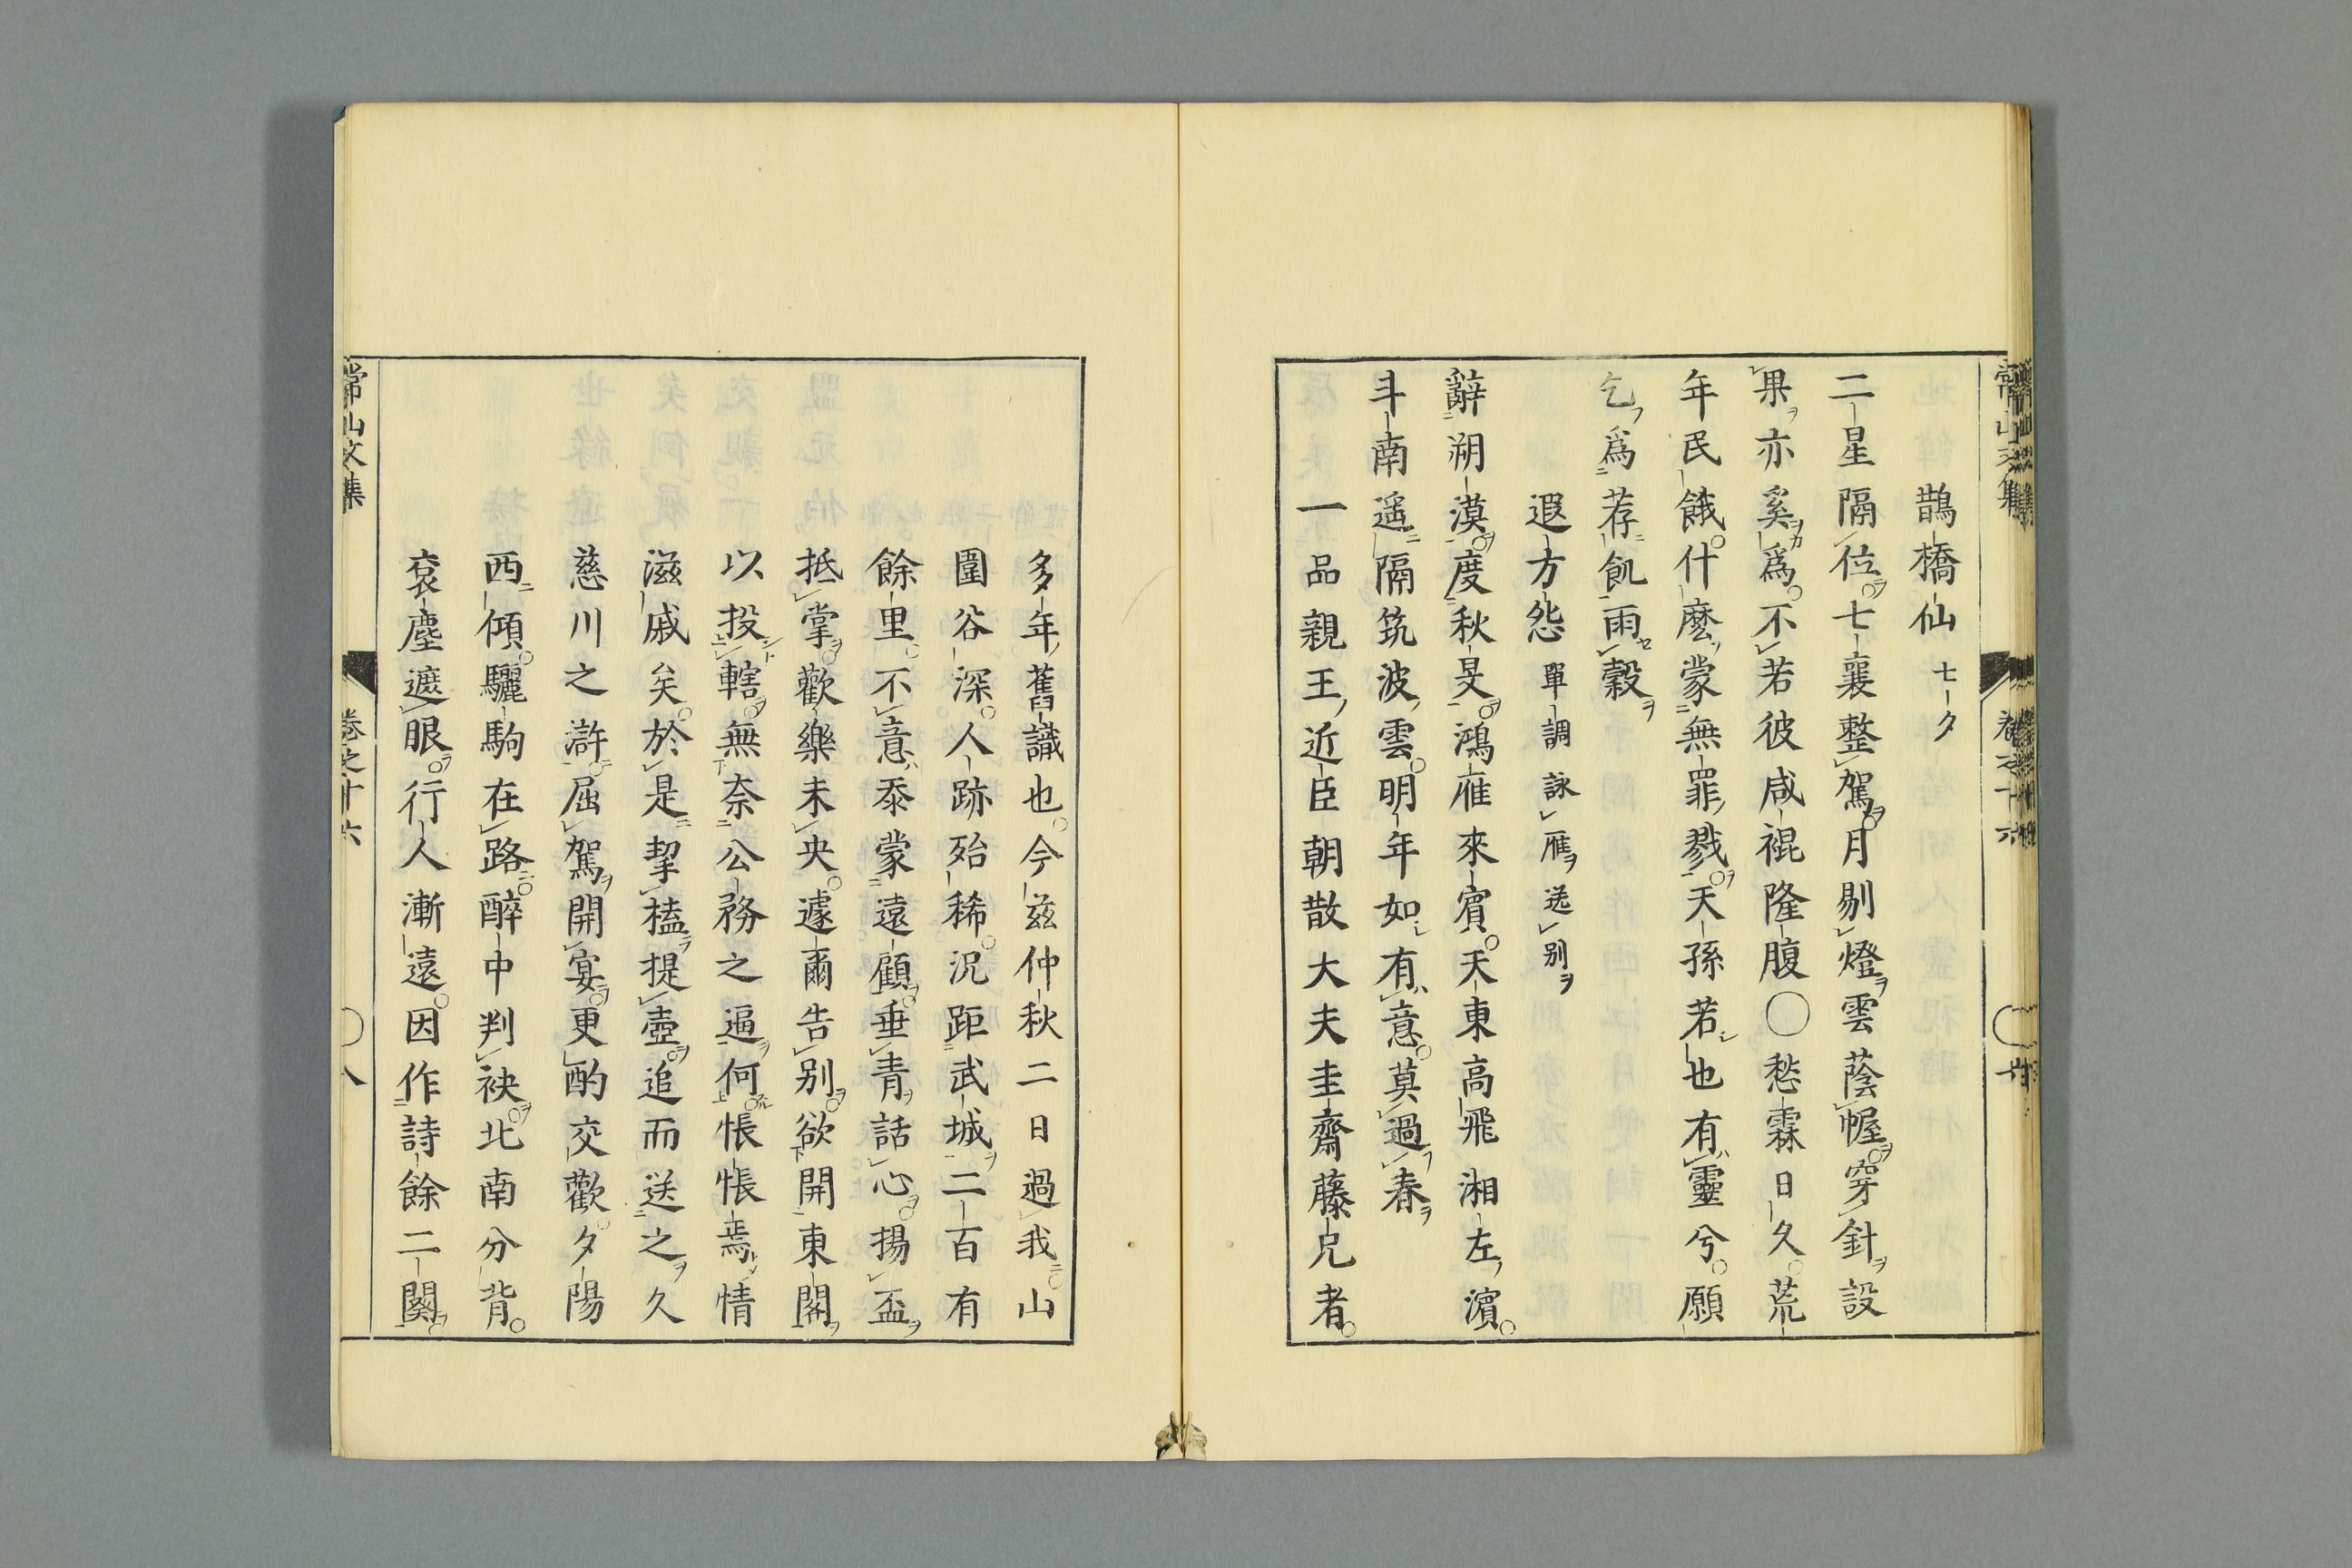 鵲橋仙 七夕
二星隔位七襄整駕月剔燈雲蔭幄穿針設
果亦奚爲不若彼咸裩隆腹○愁霖日久荒
年民餓什麼蒙無罪戮天孫若也有靈兮願
乞爲荐飢雨穀
遐方怨 單調 詠雁送別
辭朔漠度秋旻鴻雁來賓天東高飛湘左濵
斗南遥隔筑波雲明年如有意莫過春
一品親王近臣朝散大夫圭齋藤兄者
多年舊識也今茲仲秋二日過我山
圍谷深人跡殆稀況距武城二百有
餘里不意忝蒙遠顧垂青話心揚盃
抵掌歡樂未央遽爾告別欲開東閣
以投轄無奈公務之逼何悵悵焉情
滋戚矣於是挈榼提壺追而送之久
慈川之滸屈駕開宴更酌交歡夕陽
西傾驪駒在路醉中判袂北南分背
袞塵遮眼行人漸遠因作詩餘二闋
常山文集 卷之十六 八